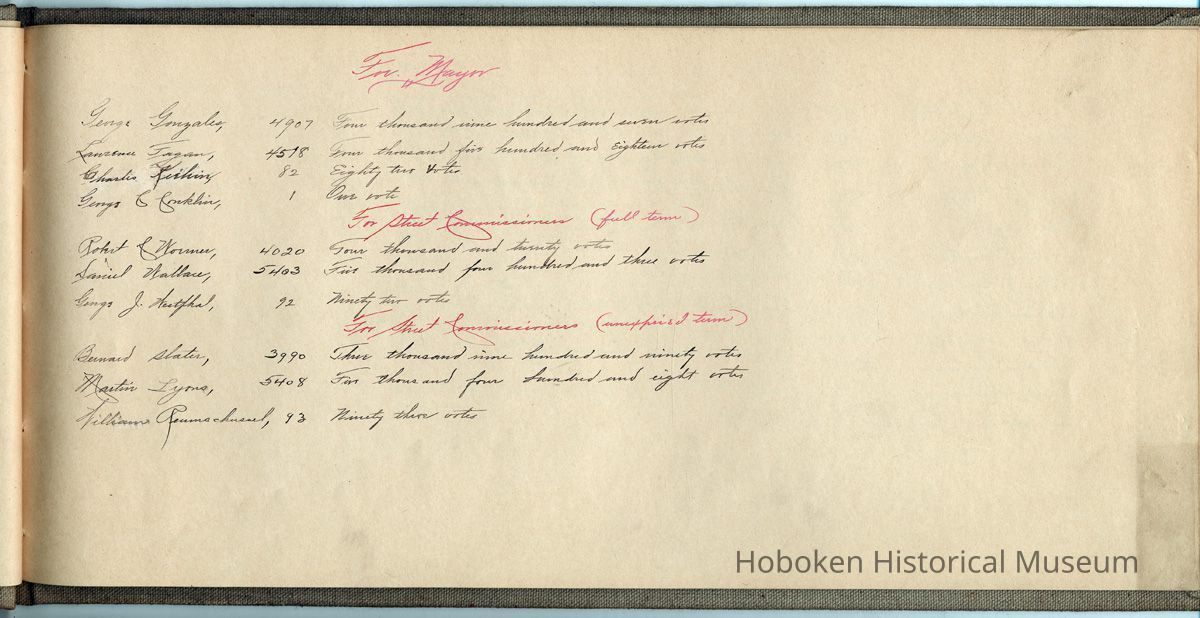 For Mayor
George Gonzales, 4907 Four thousand nine hundred and seven votes
Lawrence Fagan, 4518 Four thousand five hundred and Eighteen votes
Charles Kiehin, 82 Eighty two Votes
George C Conklin, 1 One vote
For Street Commissioners (full term)
Robert C Wormer, 4020 Four thousand and twenty votes
Daniel Wallace, 5403 Five thousand four hundred and three votes
George J. Westphal, 92 Ninety two votes
For Street Commissioners (unexpired term)
Bernard Slater, 3990 Three thousand nine hundred and ninety votes
Martin Lyons, 5408 Five thousand four hundred and eight votes
William 93 Ninety three votes
Hoboken Historical Museum